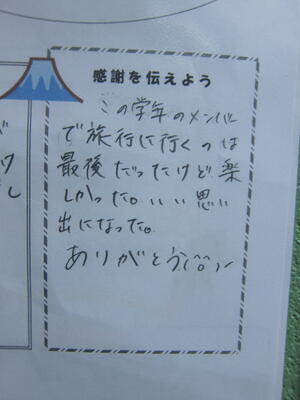 感謝を伝えよう
この学年のメンバー
で旅行に行くのは
最後だったけど楽
しかった。いい思い
出になった。
ありがとう(^o^)ノ